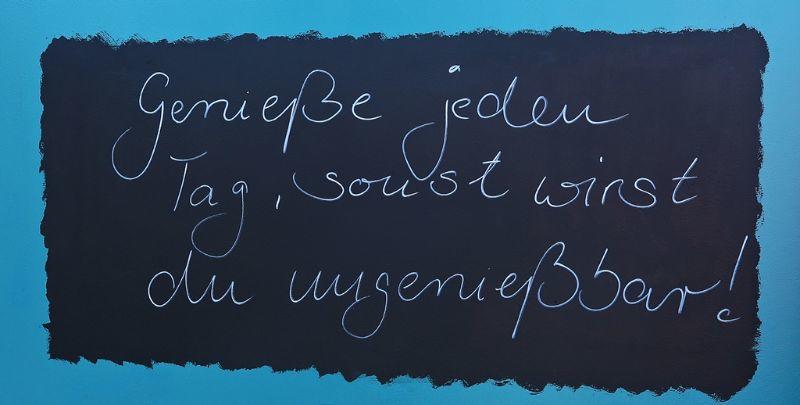 Genieße jeden
Tag, sonst wirst
du ungenießbar!